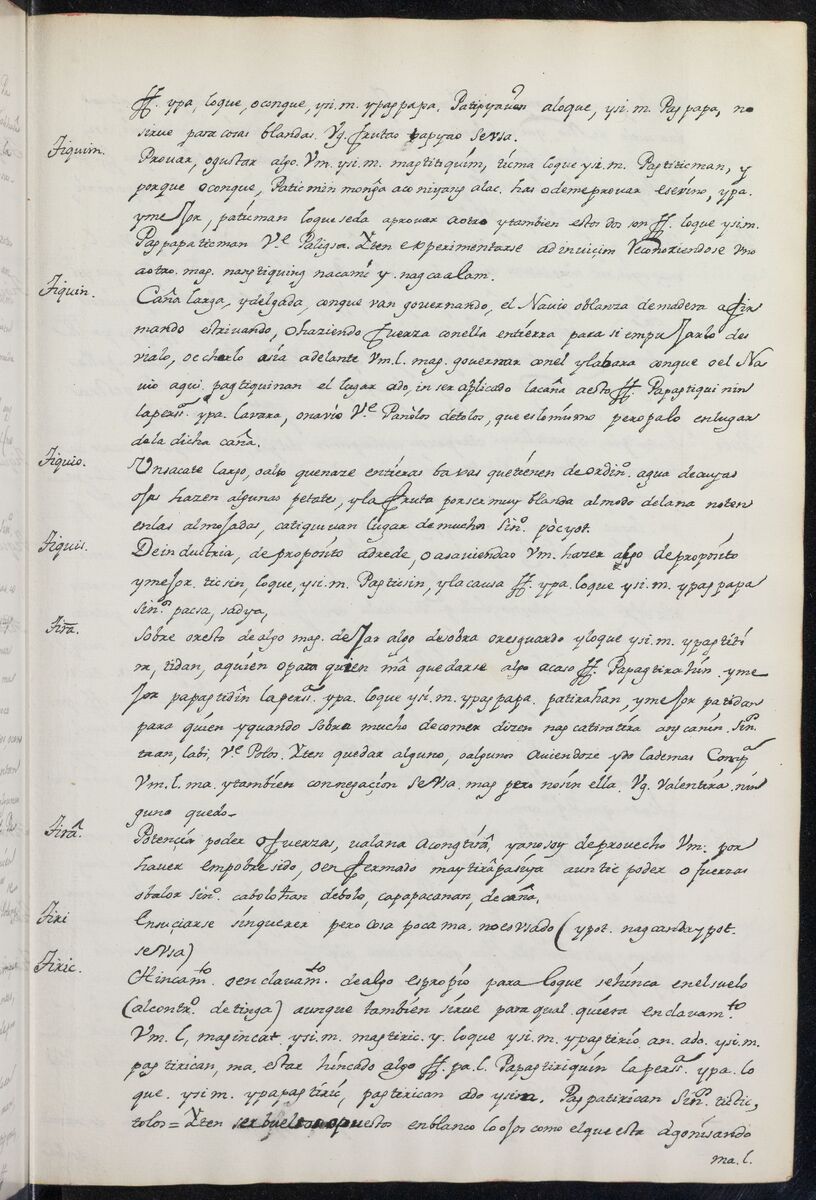 ff. ypa, loque, oconque, ysi.m. ypagpapa. aloque, ysi.m. Pagpapa, no
sirve para cosas blandas. Vg. frutas papayao se Vsa.
Tiquim. Provar, o gustar algo. Vm. ysi.m. magtitiquim, ticma loque ysi.m. Pagticman, y
porque oconque, Paticmin monga aco niyang alac. has odemeprovar ese vino, ypa.
ymejor, paticman loque seda aprovar aotro y tambien estos dos son ff. loque ysi.m.
Pagpapaticman Ve. Paligsa. Yten experimentarse ad inviçim Reconoziendose Vno
aotro. mag. nagtiquing nacami y. nagcaalam.
Tiquin. Caña larga, y delgada, conque van governando, el Navio oblanza demadera afir
mando estrivando, o haziendo fuerza conella entierra para si empujarlo des
viarlo, o echarlo asia adelante Vm.l. mag. governar con el y labara conque o el Na
vio aqui. pagtiquinan el lugar ado, in ser aplicado la caña aesto ff. Papagtiquinin
lapersa. ypa. lavara, onavio Ve. Panolos detolos, que eslomismo pero palo enlugar
dela dicha caña.
Tiquio. Vnsacate largo, oalto quenaze entierras baxas quetienen de ordino. agua decuyas
ojas hazen algunas petates, y la fruta por ser muy blanda almodo delana
enlas almojadas, catiquiuan lugar de mucho Sino. pòcyot.
Tiquis. Deindustria, de proposito adrede, o asaviendas Vm. hazer algo de proposito
ymejor. ticsin, loque, ysi.m. Pagticsin, y la causa ff. ypa. loque ysi.m. ypagpapa
Sino. pacsa, sadya,
Tira. Sobre oresto de algo mag. dejar algo desobra oresguardo yloque ysi.m. ypagtiti
ra, tidan, aquien opara quien mã quedarse algo acaso ff. Papagtirahin. yme
jor papagtidin lapersa. ypa. loque ysi.m. ypagpapa. patirahan, ymejor patidan
para quien y quando sobra mucho decomer dizen nagcatiratira ang canin. Sino.
traan, labi, Ve. Polos. Yten quedar alguno, oalgunos aviendoze ydo lademas
Vm.l. ma. ytambien con negaçion se Vsa. mag pero nosin ella. Vg. Valentira. nin
guno quedo.
Tirà. Potencia poder o fuerzas, ualana acong tirà, yanosoy deprovecho Vm. por
haver empobresido, o enfermado may tirà paseya aun tie poder o fuerzas
obalor Sino. cabolohan debolo, capapacanan, decaña.
Tiri Ensuciarse sinquerer pero cosa poca ma. no es Vsado (ypot. nagcandrypot.
se Vsa)
Tiric. Hincamto. o enclavamto. de algo es propio para loque sehinca enel suelo
(alcontro. de tinga) aunque tambien sirve para qual quiera enclavamto.
Vm. l, mag incat. ysi.m. magtiric. y. loque ysi.m. ypagtiric. an. ado. ysi.m.
pagtirican, ma, estar hincado algo ff. pa. l. Papagtiriquin lapersa. ypa. lo
que. ysi.m. ypapagtiric, pagtirican ado ysim. Pagpatirican Sino. tictic,
tolos = Yten ser bueltos opuestos enblanco los ojos como el que esta agonisando
ma.l.